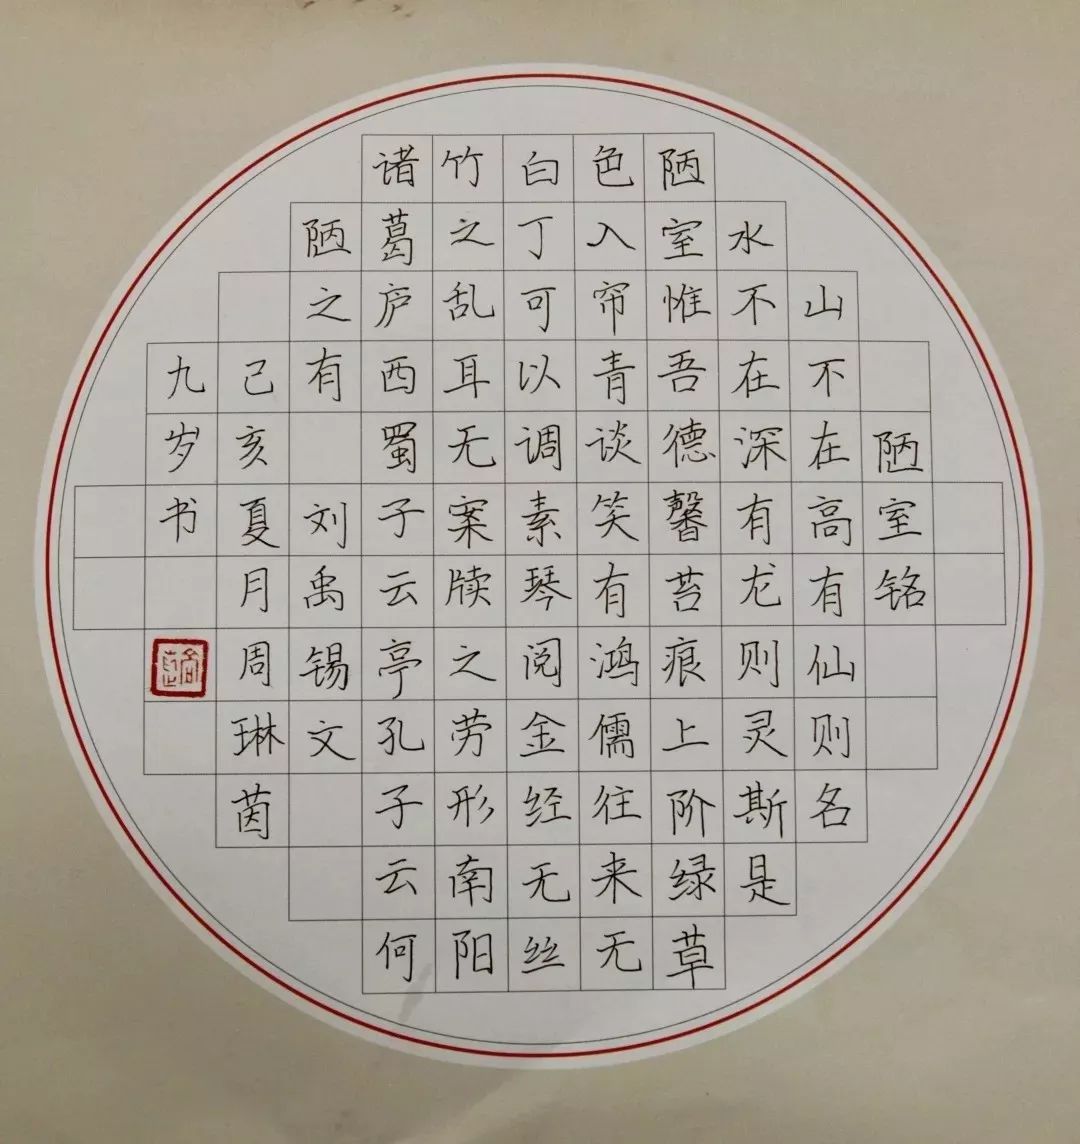 陋室铭
山不在高有仙则名
水不在深有龙则灵斯是
陋室惟吾德馨苔痕上阶绿草
色入帘青谈笑有鸿儒往来无
白丁可以调素琴阅金经无丝
竹之乱耳无案牍之劳形南阳
诸葛庐西蜀子云亭孔子云何
陋之有 刘禹锡文
己亥夏月周琳茵
九岁书